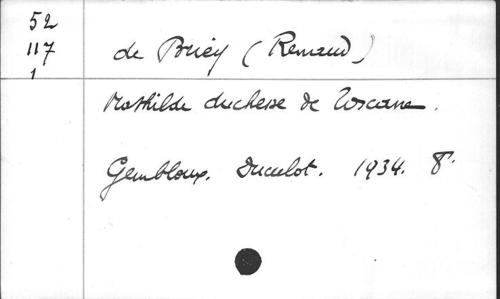 52
117
1
de Briey (Renaud)
Mathilde duchesse de Toscane.
Gembloux. Duculot. 1934. 8°.